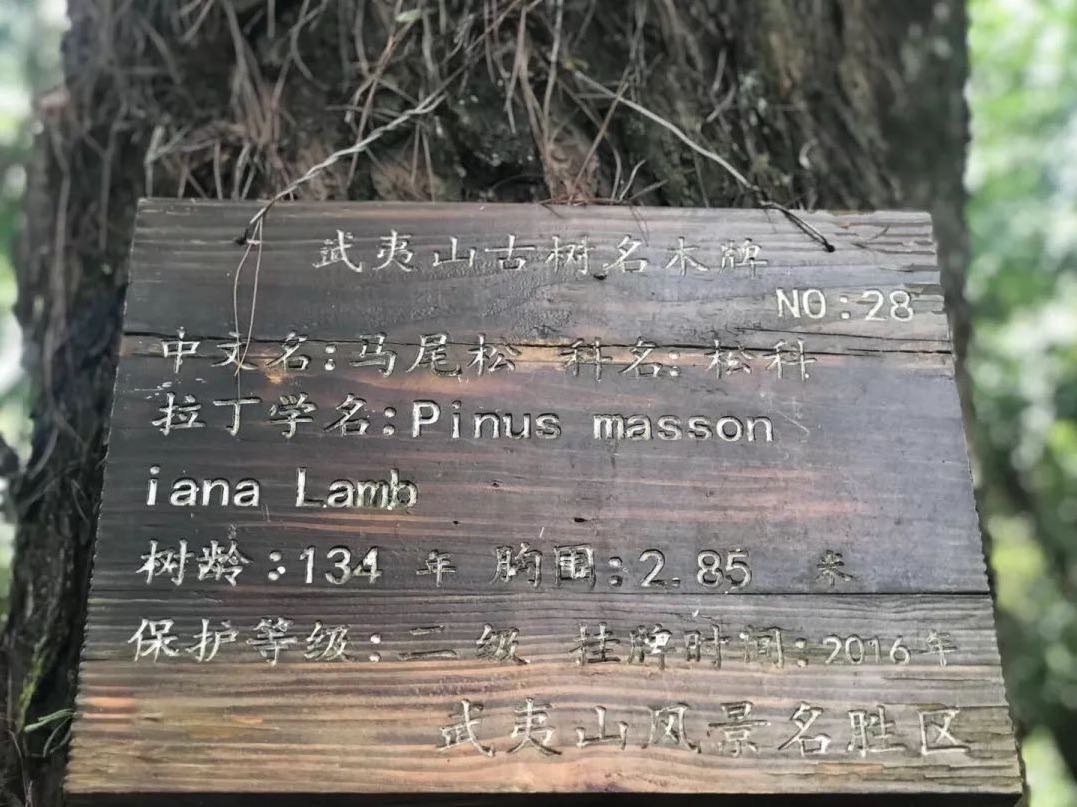 武夷山古树名木牌
NO:28
中文名:马尾松 科名:松科
拉丁学名:Pinus masson
iana Lamb
树龄:134 年 胸围:2.85 米
保护等级:二级 挂牌时间:2016年
武夷山风景名胜区